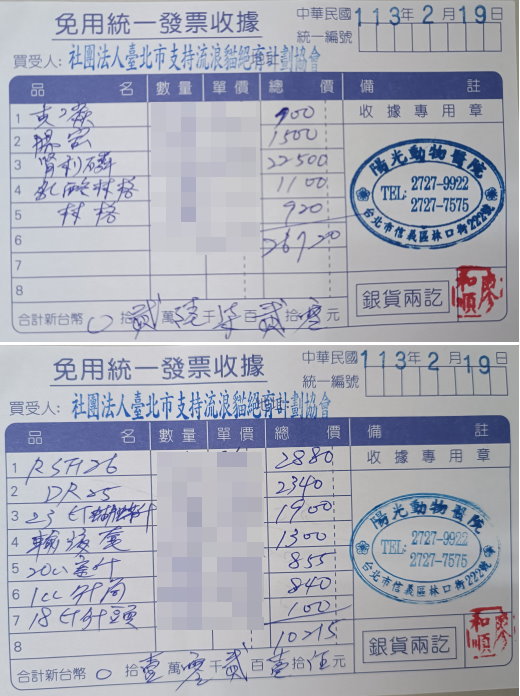 免用統一發票收據
中華民國113年2月19日
統一編號
買受人:社團法人臺北市支持流浪貓絕育計劃協會
品名 數量 單價 總價 備註
收據專用章
1 900
2 1500
3 腎利磷 22500
4 1100
5 920
6 26920
7
8
陽光動物醫院
TEL: 2727-9922
2727-7575
台北市信義區林口街222號
銀貨兩訖
合計新台幣 0 拾 貳 萬 陸 千 百 貳 拾 零 元
免用統一發票收據
中華民國113年2月19日
統一編號
買受人:社團法人臺北市支持流浪貓絕育計劃協會
品名 數量 單價 總價 備註
收據專用章
1 2880
2 DR 25 2340
3 1900
4 1300
5 855
6 1cc 針筒 840
7 18 針頭 100
8 10215
陽光動物醫院
TEL: 2727-9922
2727-7575
台北市信義區林口街222號
銀貨兩訖
合計新台幣 0 拾 壹 萬 零 貳 百 壹 拾 伍 元